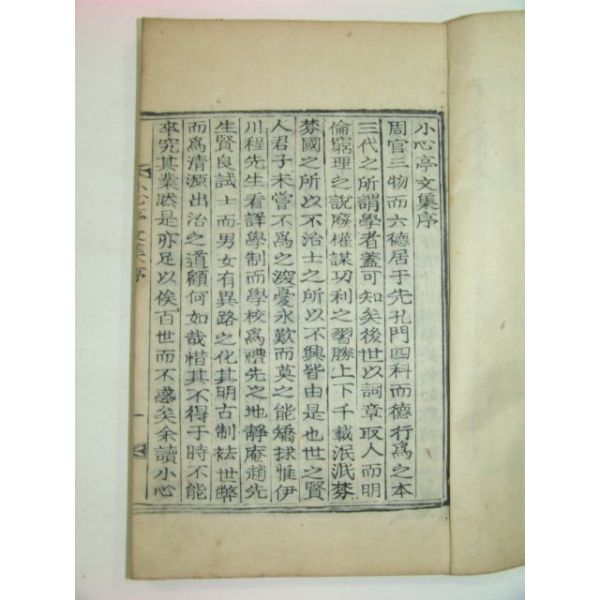 小心亭文集序
周官三物而六德居于先孔門四科而德行爲之本
三代之所謂學者蓋可知矣後世以詞章取人而明
倫窮理之說廢權謀功利之習勝上下千載泯泯棼
棼國之所以不治士之所以不興皆由是也世之賢
人君子未嘗不爲之深憂永歎而莫之能矯捄惟伊
川程先生看詳學制而學校爲禮先之地靜庵趙先
生賢良試士而男女有異路之化其明古制祛世弊
而爲清源出治之道顧何如哉惜其不得于時不能
卒究其業然是亦足以俟百世而不惑矣余讀小心
小心亭文集序
一